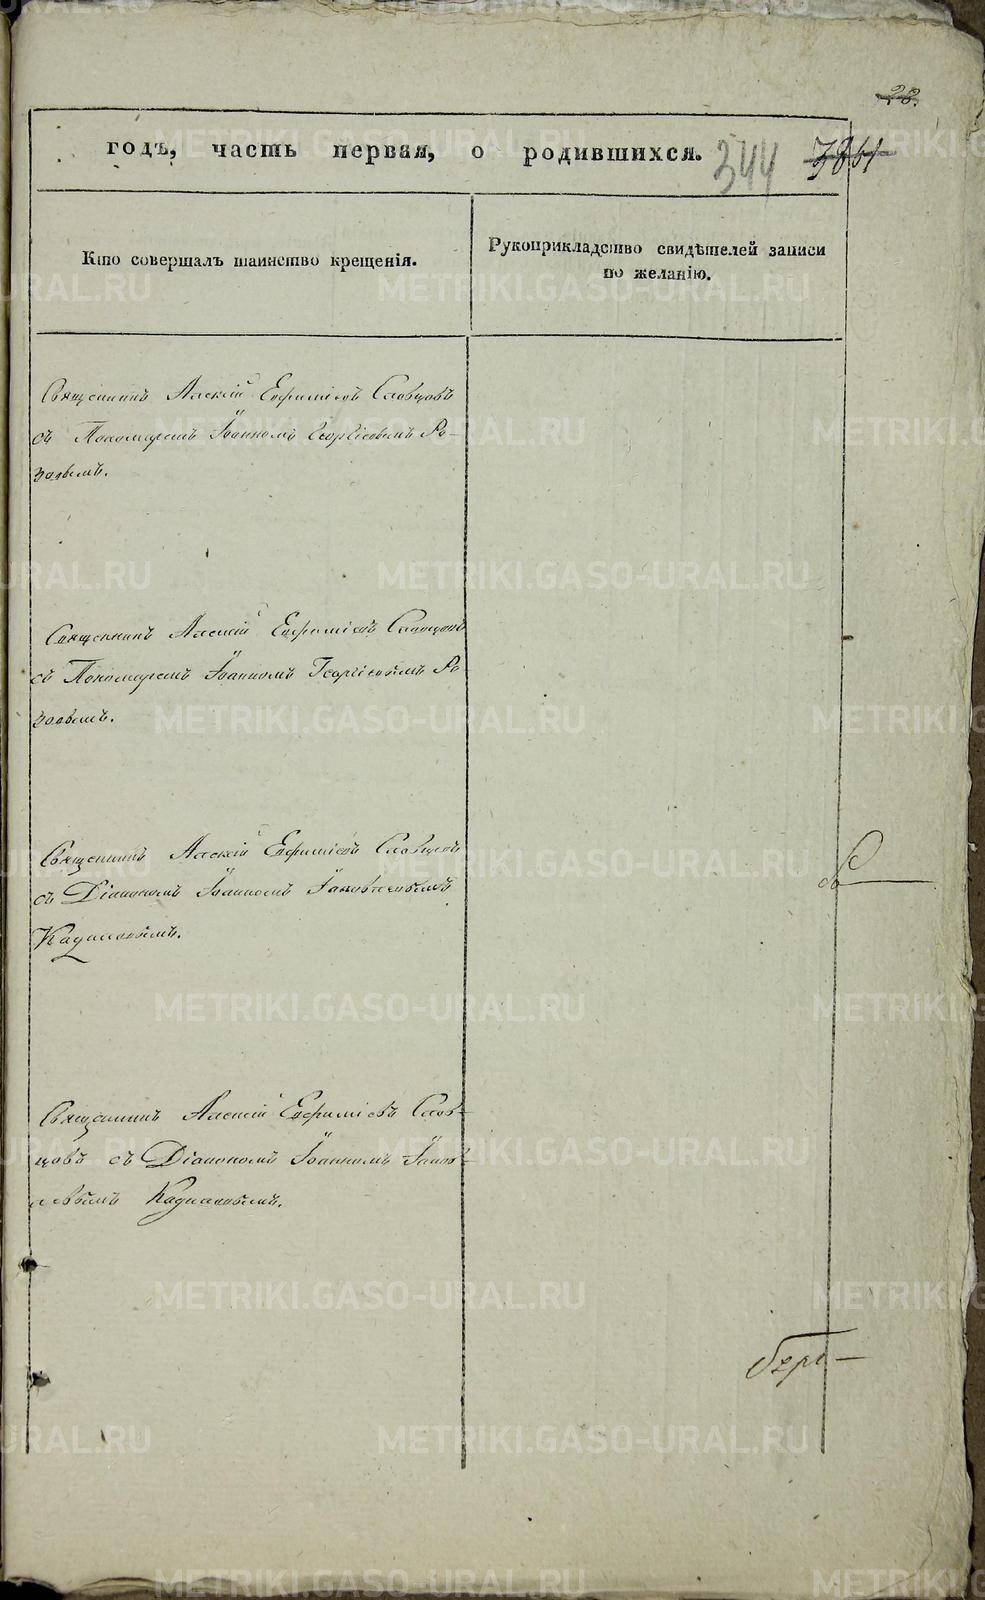 28.
годъ, часть первая, о родившихся.
344
Кто совершалъ таинство крещенія.
Рукоприкладство свидѣтелей записи
по желанію.
Священникъ Алексій Евфиміевъ Словцовъ
съ Пономаремъ Іоанномъ Георгіевымъ Ро-
зовымъ.
Священникъ Алексій Евфиміевъ Словцовъ
съ Пономаремъ Іоанномъ Георгіевымъ Ро-
зовымъ.
Священникъ Алексій Евфиміевъ Словцовъ
съ Діакономъ Іоанномъ Іаковлевымъ
Кадмаковымъ.
Священникъ Алексій Евфиміевъ Слов-
цовъ съ Діакономъ Іоанномъ Іаков-
левымъ
METRIKI.GASO-URAL.RU